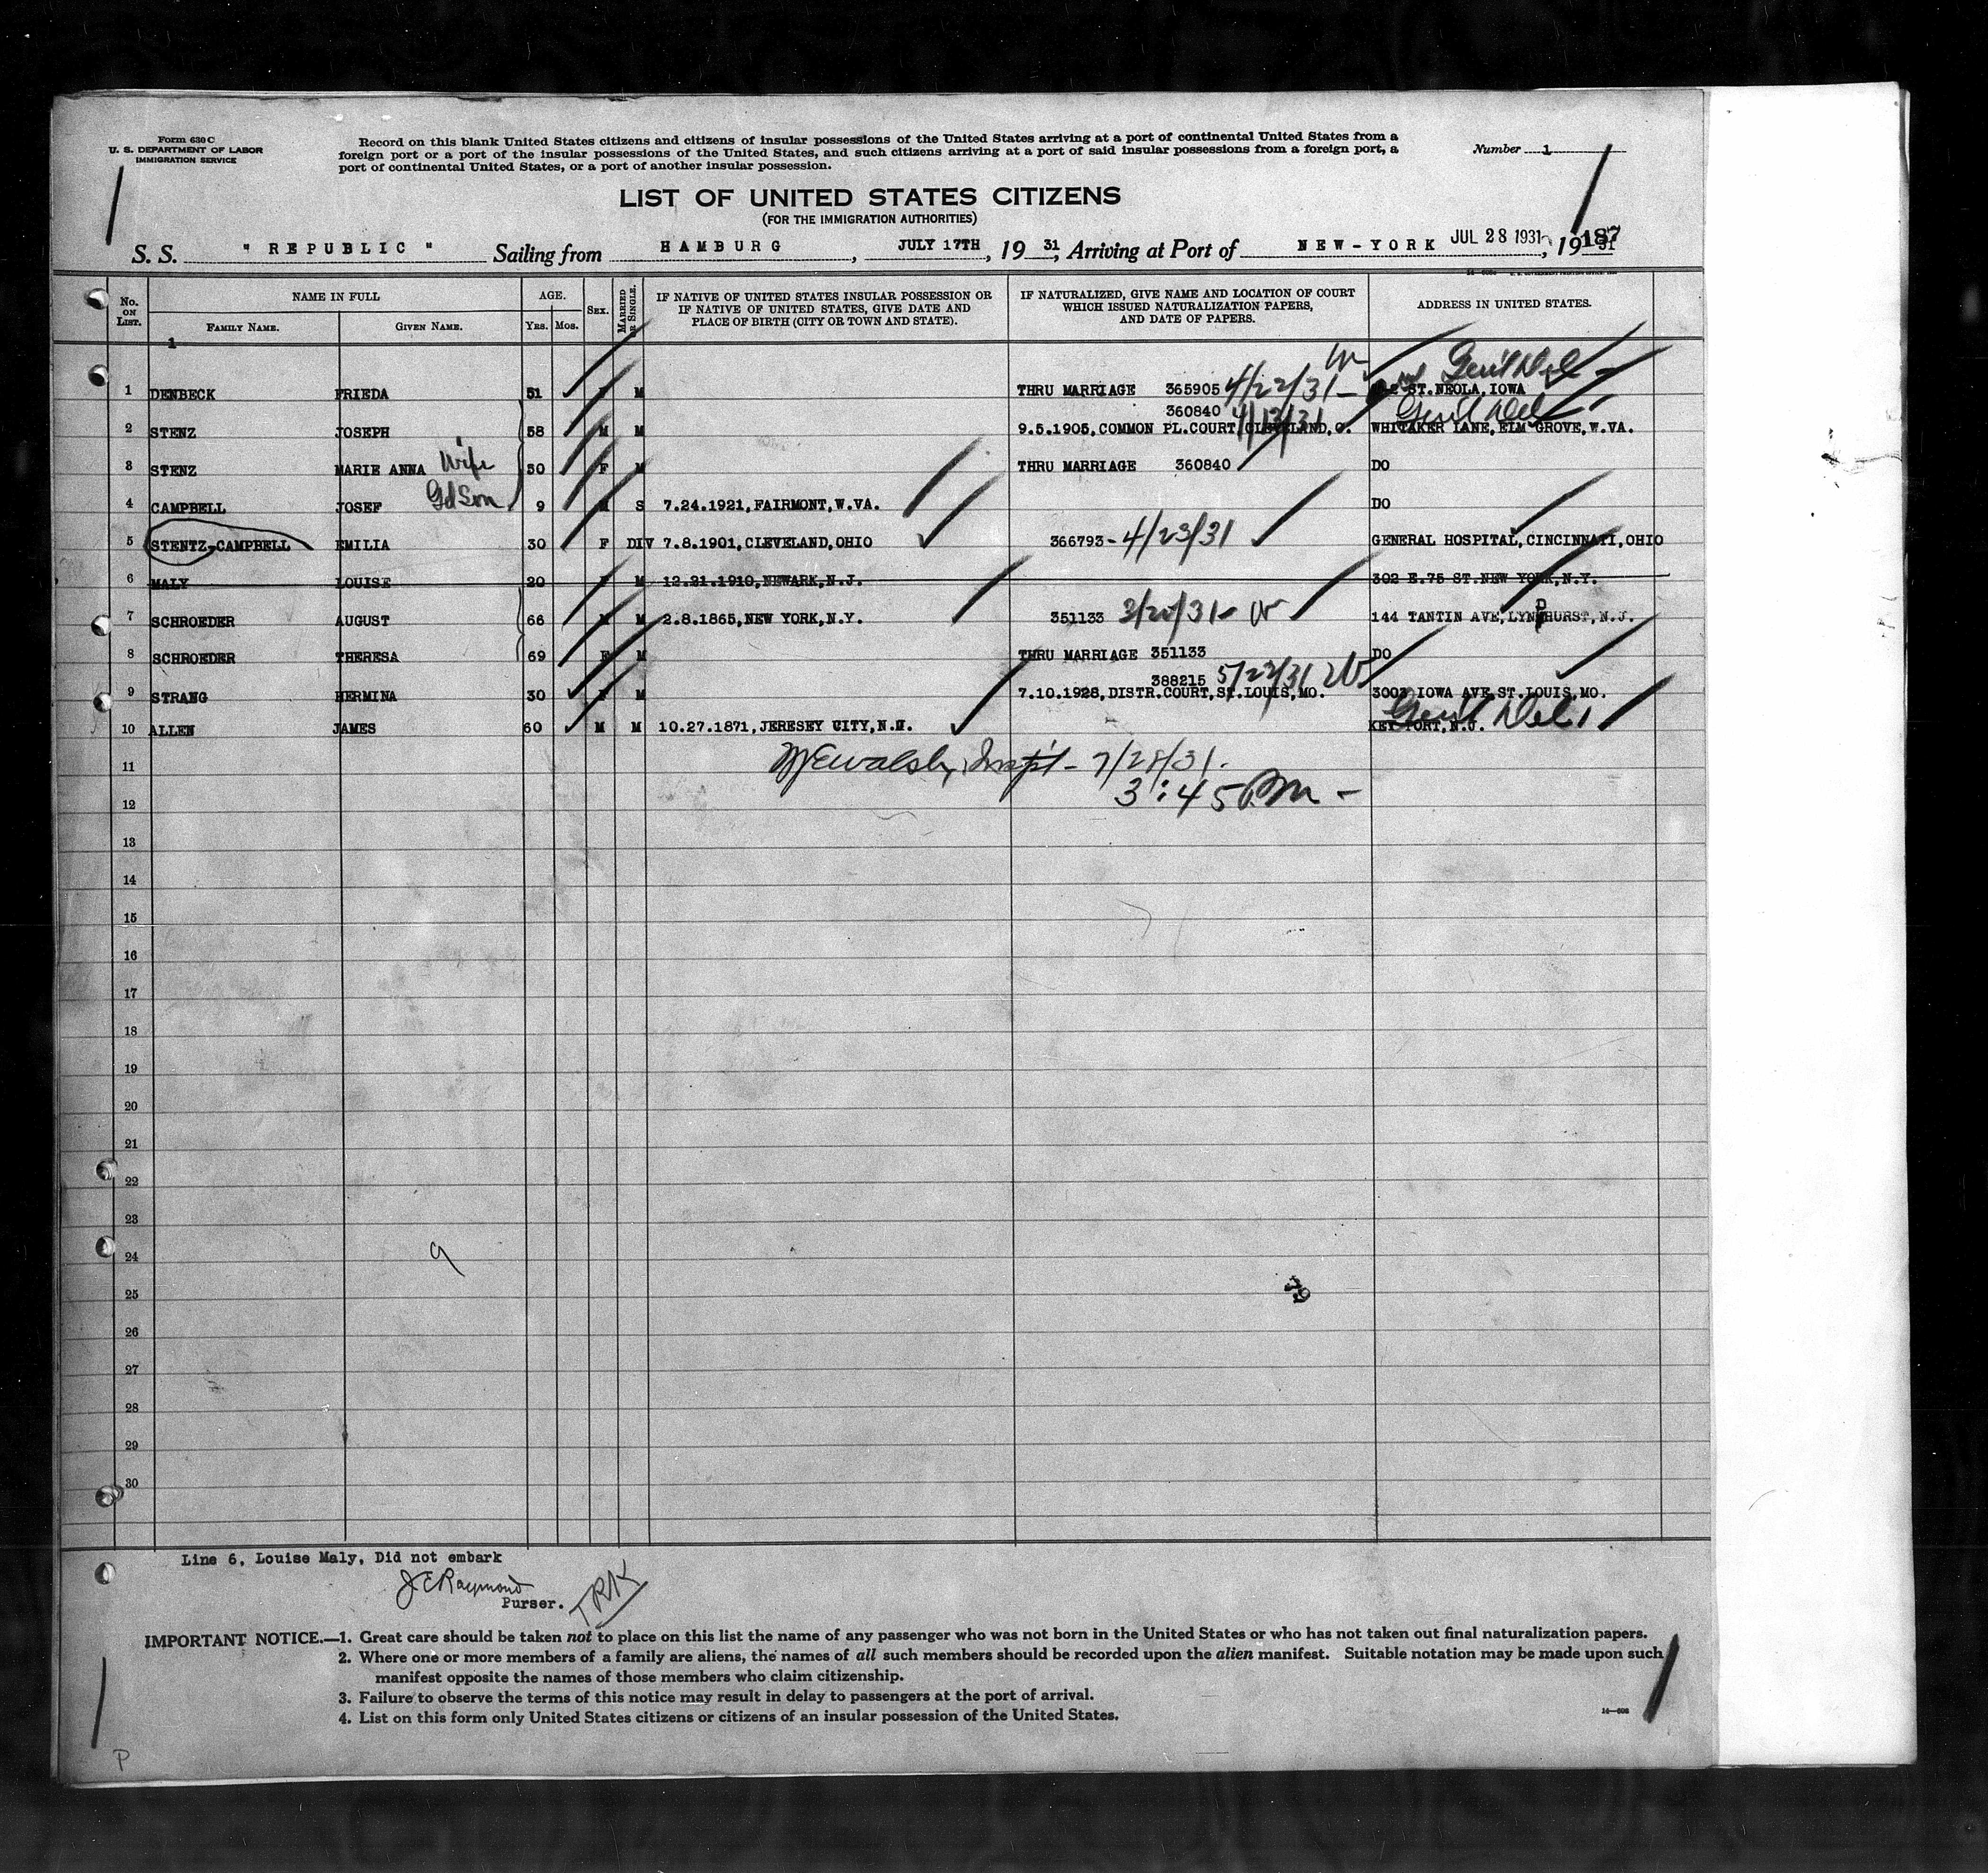 Form 630 C
U. S. DEPARTMENT OF LABOR
IMMIGRATION SERVICE
Record on this blank United States citizens and citizens of insular possessions of the United States arriving at a port of continental United States from a
foreign port or a port of the insular possessions of the United States, and such citizens arriving at a port of said insular possessions from a foreign port, a
port of continental United States, or a port of another insular possession.
Number 1
LIST OF UNITED STATES CITIZENS
(FOR THE IMMIGRATION AUTHORITIES)
S. S. "REPUBLIC" Sailing from HAMBURG, JULY 17TH, 1931, Arriving at Port of NEW-YORK JUL 28 1931, 1931 187
No. ON LIST. NAME IN FULL AGE. SEX. MARRIED OR SINGLE. IF NATIVE OF UNITED STATES INSULAR POSSESSION OR IF NATIVE OF UNITED STATES, GIVE DATE AND PLACE OF BIRTH (CITY OR TOWN AND STATE). IF NATURALIZED, GIVE NAME AND LOCATION OF COURT WHICH ISSUED NATURALIZATION PAPERS, AND DATE OF PAPERS. ADDRESS IN UNITED STATES.
FAMILY NAME. GIVEN NAME. YRS. MOS.
1
1 DENBECK FRIEDA 51 F M THRU MARRIAGE 365905 4/22/31 - ST.NEOLA,IOWA Gen'l Del
360840 4/13/31 Gen'l Del
2 STENZ JOSEPH 58 M M 9.5.1905,COMMON PL.COURT,CLEVELAND,O. WHITAKER LANE,ELM GROVE,W.VA.
3 STENZ MARIE ANNA Wife 50 F M THRU MARRIAGE 360840 DO
4 CAMPBELL JOSEF GdSon 9 M S 7.24.1921,FAIRMONT,W.VA. DO
5 STENTZ-CAMPBELL EMILIA 30 F DIV 7.8.1901,CLEVELAND,OHIO 366793 - 4/23/31 GENERAL HOSPITAL,CINCINNATI,OHIO
6 MALY LOUISE 20 F M 12.21.1910,NEWARK,N.J. 302 E.75 ST.NEW YORK,N.Y.
7 SCHROEDER AUGUST 66 M M 2.8.1865,NEW YORK,N.Y. 351133 144 TANTIN AVE,LYNDHURST,N.J.
8 SCHROEDER THERESA 69 F M THRU MARRIAGE 351133 DO
388215 5/23/31
9 STRANG HERMINA 30 F M 7.10.1928,DISTR.COURT,ST.LOUIS,MO. 3003 IOWA AVE,ST.LOUIS,MO.
10 ALLEN JAMES 60 M M 10.27.1871,JERESEY CITY,N.J. KEY PORT,N.J. Gen'l Del
11 Insp't - 7/28/31.
12 3:45 Pm -
13
14
15
16
17
18
19
20
21
22
23
24 9
25
26
27
28
29
30
Line 6, Louise Maly, Did not embark
J E Raymond
Purser. TRK
IMPORTANT NOTICE.—1. Great care should be taken not to place on this list the name of any passenger who was not born in the United States or who has not taken out final naturalization papers.
2. Where one or more members of a family are aliens, the names of all such members should be recorded upon the alien manifest. Suitable notation may be made upon such
manifest opposite the names of those members who claim citizenship.
3. Failure to observe the terms of this notice may result in delay to passengers at the port of arrival.
4. List on this form only United States citizens or citizens of an insular possession of the United States.
P